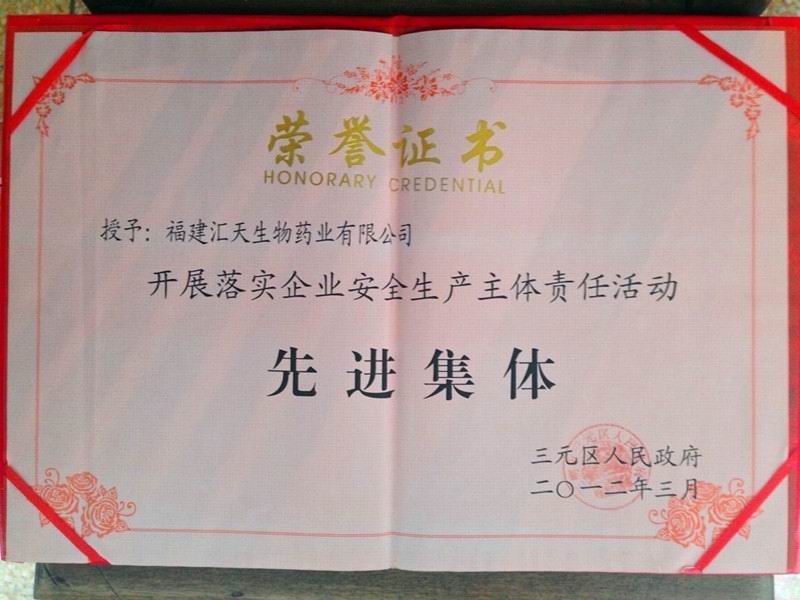 荣誉证书
HONORARY CREDENTIAL
授予：福建汇天生物药业有限公司
开展落实企业安全生产主体责任活动
先进集体
三元区人民政府
二〇一二年三月